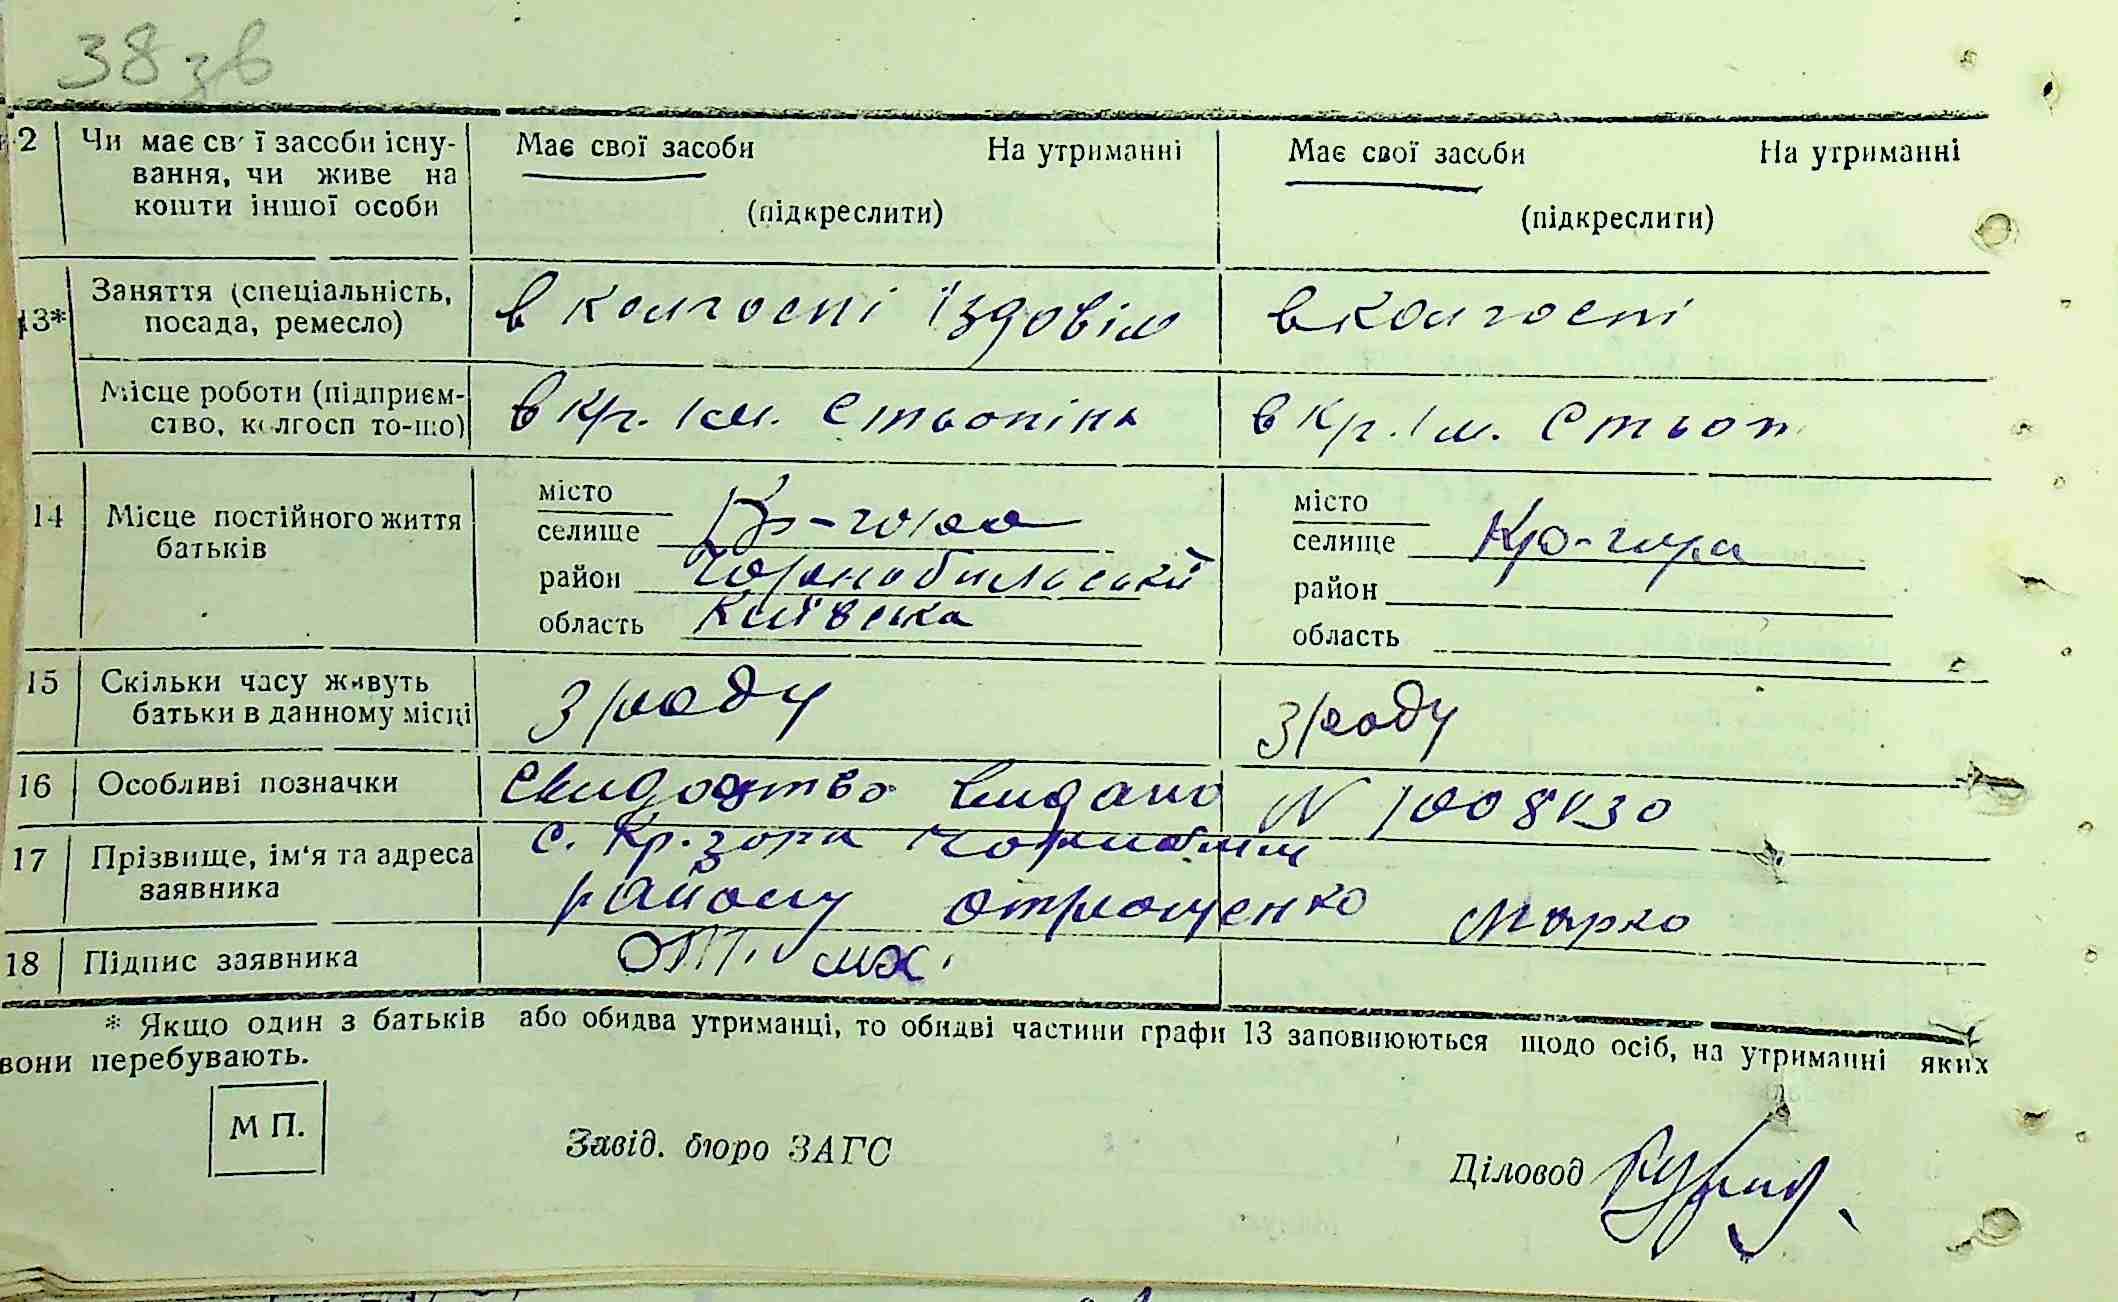 38 зв
12 Чи має свої засоби існу- Має свої засоби На утриманні Має свої засоби На утриманні
вання, чи живе на
кошти іншої особи (підкреслити) (підкреслити)
13* Заняття (спеціальність, в колгоспі їздовім в колгоспі
посада, ремесло)
Місце роботи (підприєм- в кр. ім. Стьопіна в кр. ім. Стьоп
ство, колгосп то-що)
14 Місце постійного життя батьків
місто
селище Кр-гора
район Чорнобильський
область Київська
місто
селище Кр-гора
район
область
15 Скільки часу живуть з роду з роду
батьки в данному місці
16 Особливі позначки Свидоцтво видано N
17 Прізвище, ім'я та адреса с. Кр. гора
заявника району Отрощенко Марко
18 Підпис заявника От.
* Якщо один з батьків або обидва утриманці, то обидві частини графи 13 заповнюються щодо осіб, на утриманні яких
вони перебувають.
М П.
Завід. бюро ЗАГС
Діловод